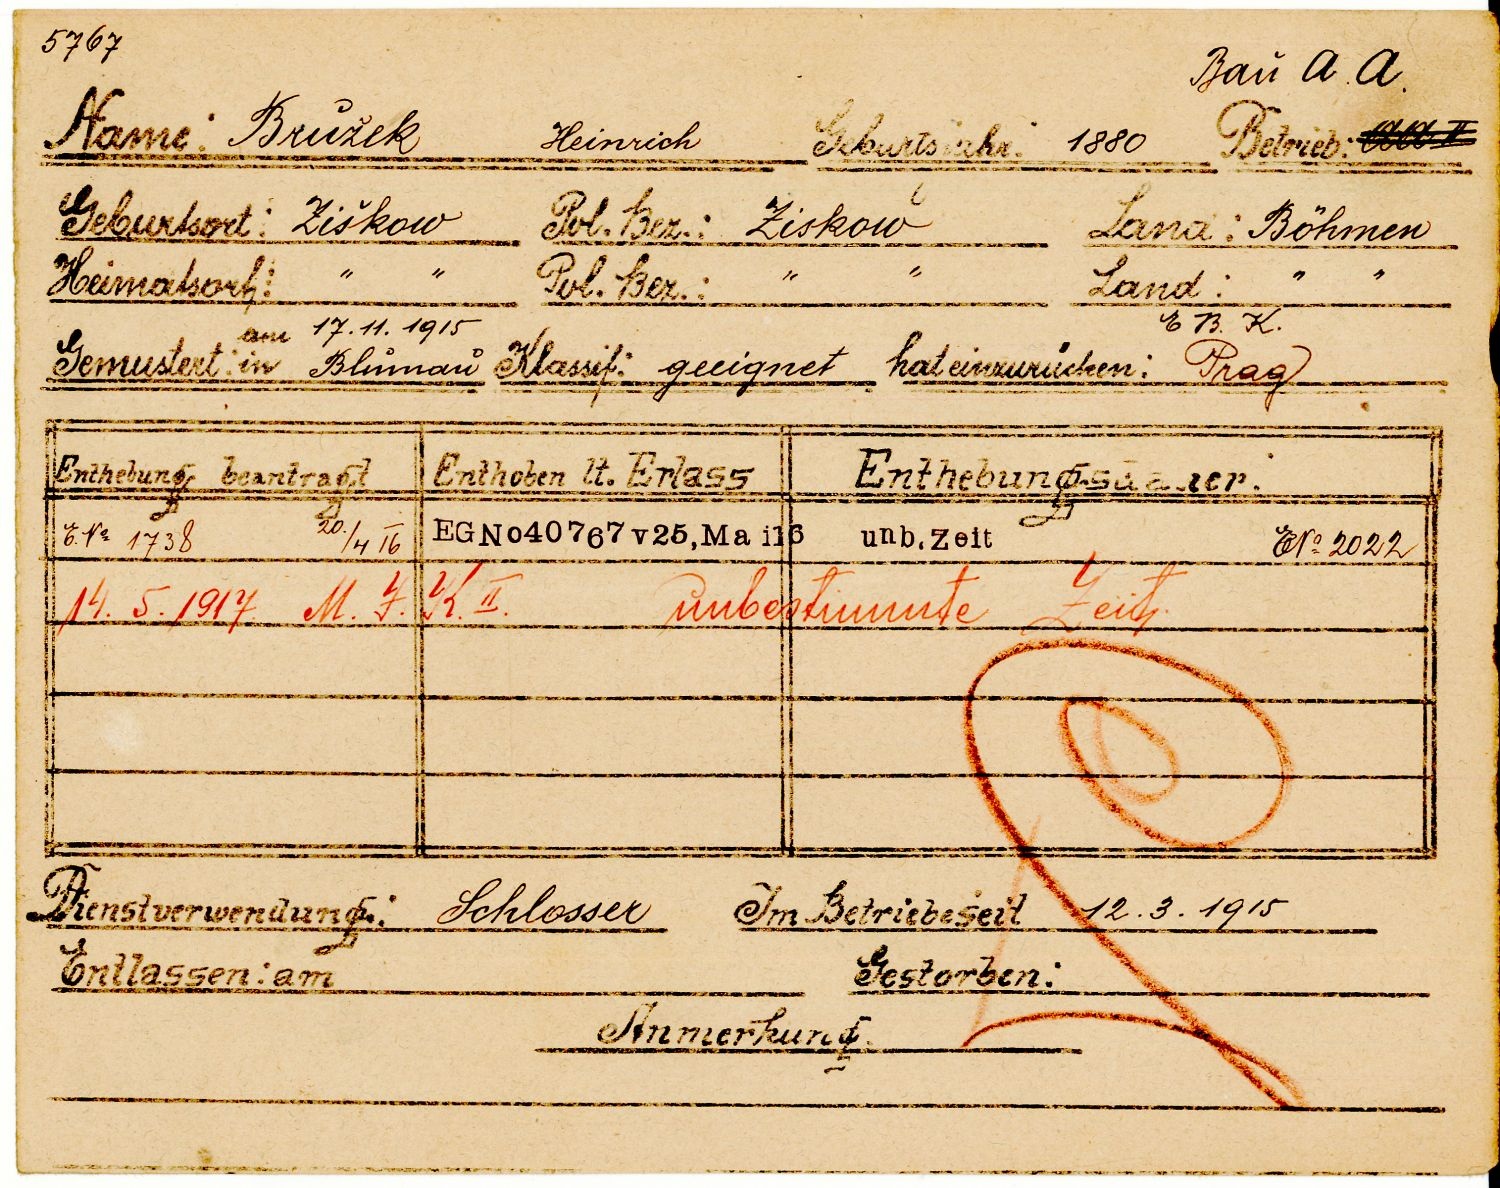 5767
Bau A. A.
Name: Bružek Heinrich Geburtsjahr: 1880 Betrieb:
Geburtsort: Žiškow Pol. Bez.: Žiskow Land: Böhmen
Heimatsort: " " Pol. Bez.: " " Land: " "
am 17.11.1915 E. B. K.
Gemustert: in Blumau Klassif: geeignet hat einzurücken: Prag
Enthebung beantragt Enthoben lt. Erlass Enthebungsdauer:
E. No 1738 20./4 16 EGNo40767v25,Mai16 unb.Zeit ENo 2022
14. 5. 1917 M. F. K. II. unbestimmte Zeit.
Dienstverwendung: Schlosser Im Betriebe seit 12.3.1915
Entlassen: am Gestorben:
Anmerkung.